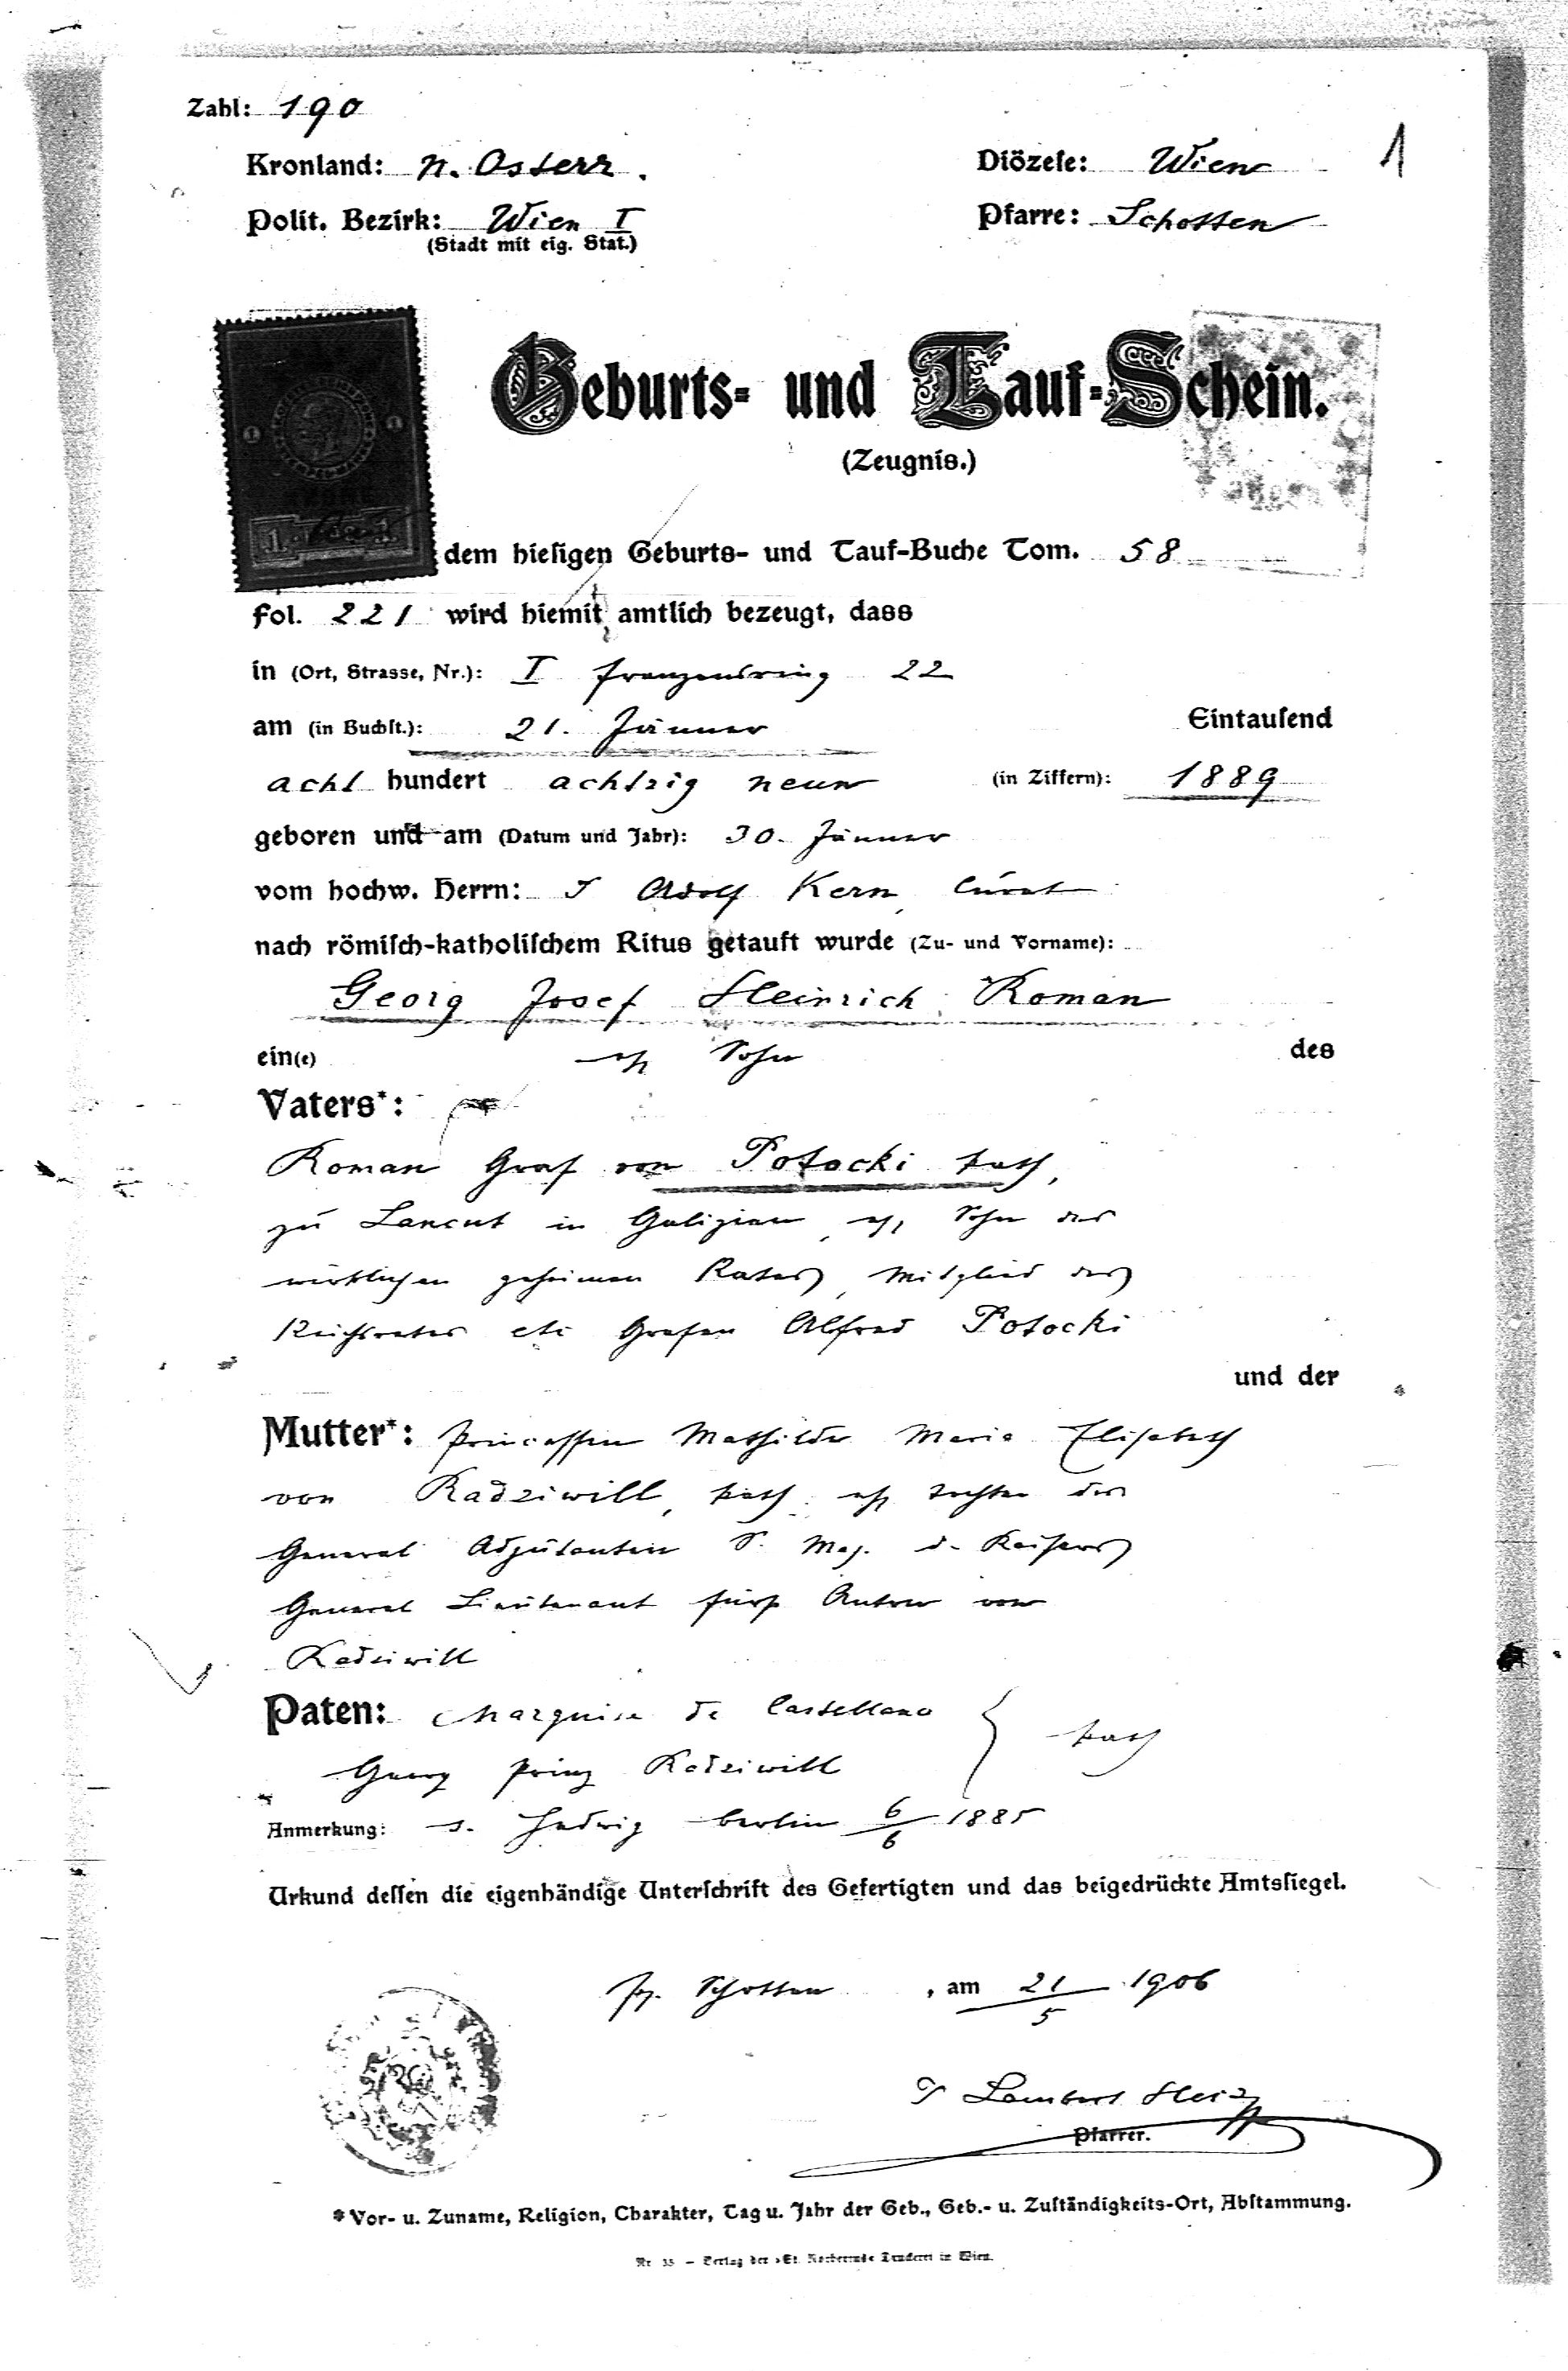 Zahl: 190
Kronland: N. Osterr.
Diözese: Wien
1
Polit. Bezirk: Wien I
(Stadt mit eig. Stat.)
Pfarre: Schotten
Geburts- und Tauf-Schein.
(Zeugnis.)
dem hiesigen Geburts- und Tauf-Buche Tom. 58
Fol. 221 wird hiemit amtlich bezeugt, dass
in (Ort, Strasse, Nr.): I Franzensring 22
am (in Buchst.): 21. Jänner Eintausend
acht hundert achtzig neun (in Ziffern): 1889
geboren und am (Datum und Jahr): 30. Jänner
vom hochw. Herrn: P Adolf Kern, Curat
nach römisch-katholischem Ritus getauft wurde (Zu- und Vorname):
Georg Josef Heinrich Roman
ein(e) eh Sohn des
Vaters*:
Roman Graf von Potocki kath,
zu Lancut in Galizien, eh, Sohn des
wirklichen geheimen Rates, Mitglied des
Reichsrates etc Grafen Alfred Potocki
und der
Mutter*: Princessin Mathilde Maria Elisabeth
von Radziwill, kath. eh Tochter des
General Adjutanten S. Maj. d. Kaisers
General Lieutenant Fürst Anton von
Radziwill
Paten: Marquise de Castellane } kath
Georg Prinz Radziwill
Anmerkung: s. Hedwig Berlin 6/6 1885
Urkund dessen die eigenhändige Unterschrift des Gefertigten und das beigedrückte Amtssiegel.
Schotten, am 21/5 1906
P Lambert
Pfarrer.
*Vor- u. Zuname, Religion, Charakter, Tag u. Jahr der Geb., Geb.- u. Zuständigkeits-Ort, Abstammung.
Nr. 35 – Verlag der »St. Norbertus« Druckerei in Wien.